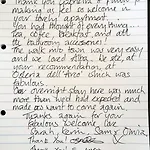 Thank you
making us feel so welcome in
your lovely apartment.
You had thought of everything
Tea, coffee, breakfast, and all
the bathroom accessories!
The walk into town was very easy
and we loved
your recommendation, at
Osteria dell'Arco which was
fabulous.
Our overnight stay here was much
more than we'd had expected and
made us want to come again.
Thanks again for your
fabulous welcome, love
Sarah, Kevin, Sam &
Thank You!